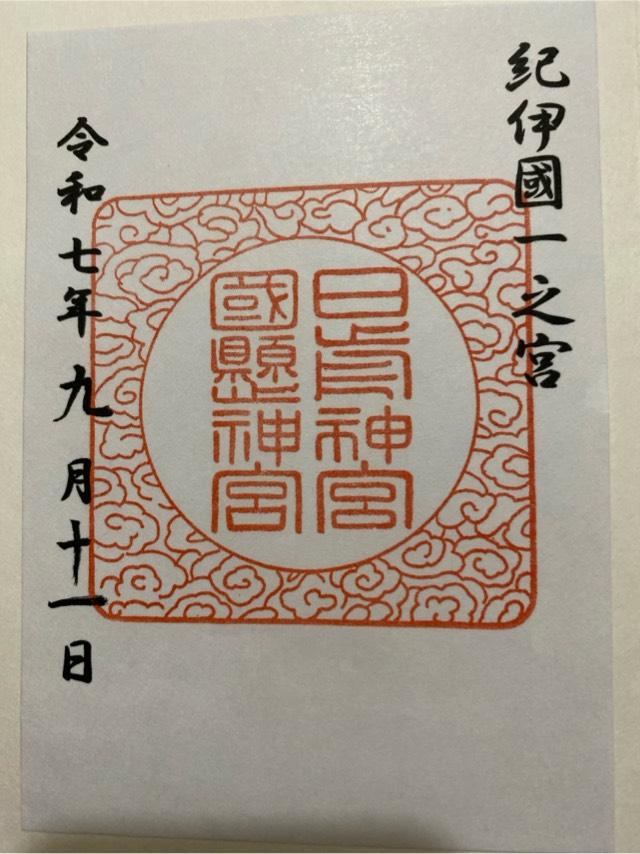 紀伊國一之宮
日前神宮
國懸神宮
令和七年九月十一日